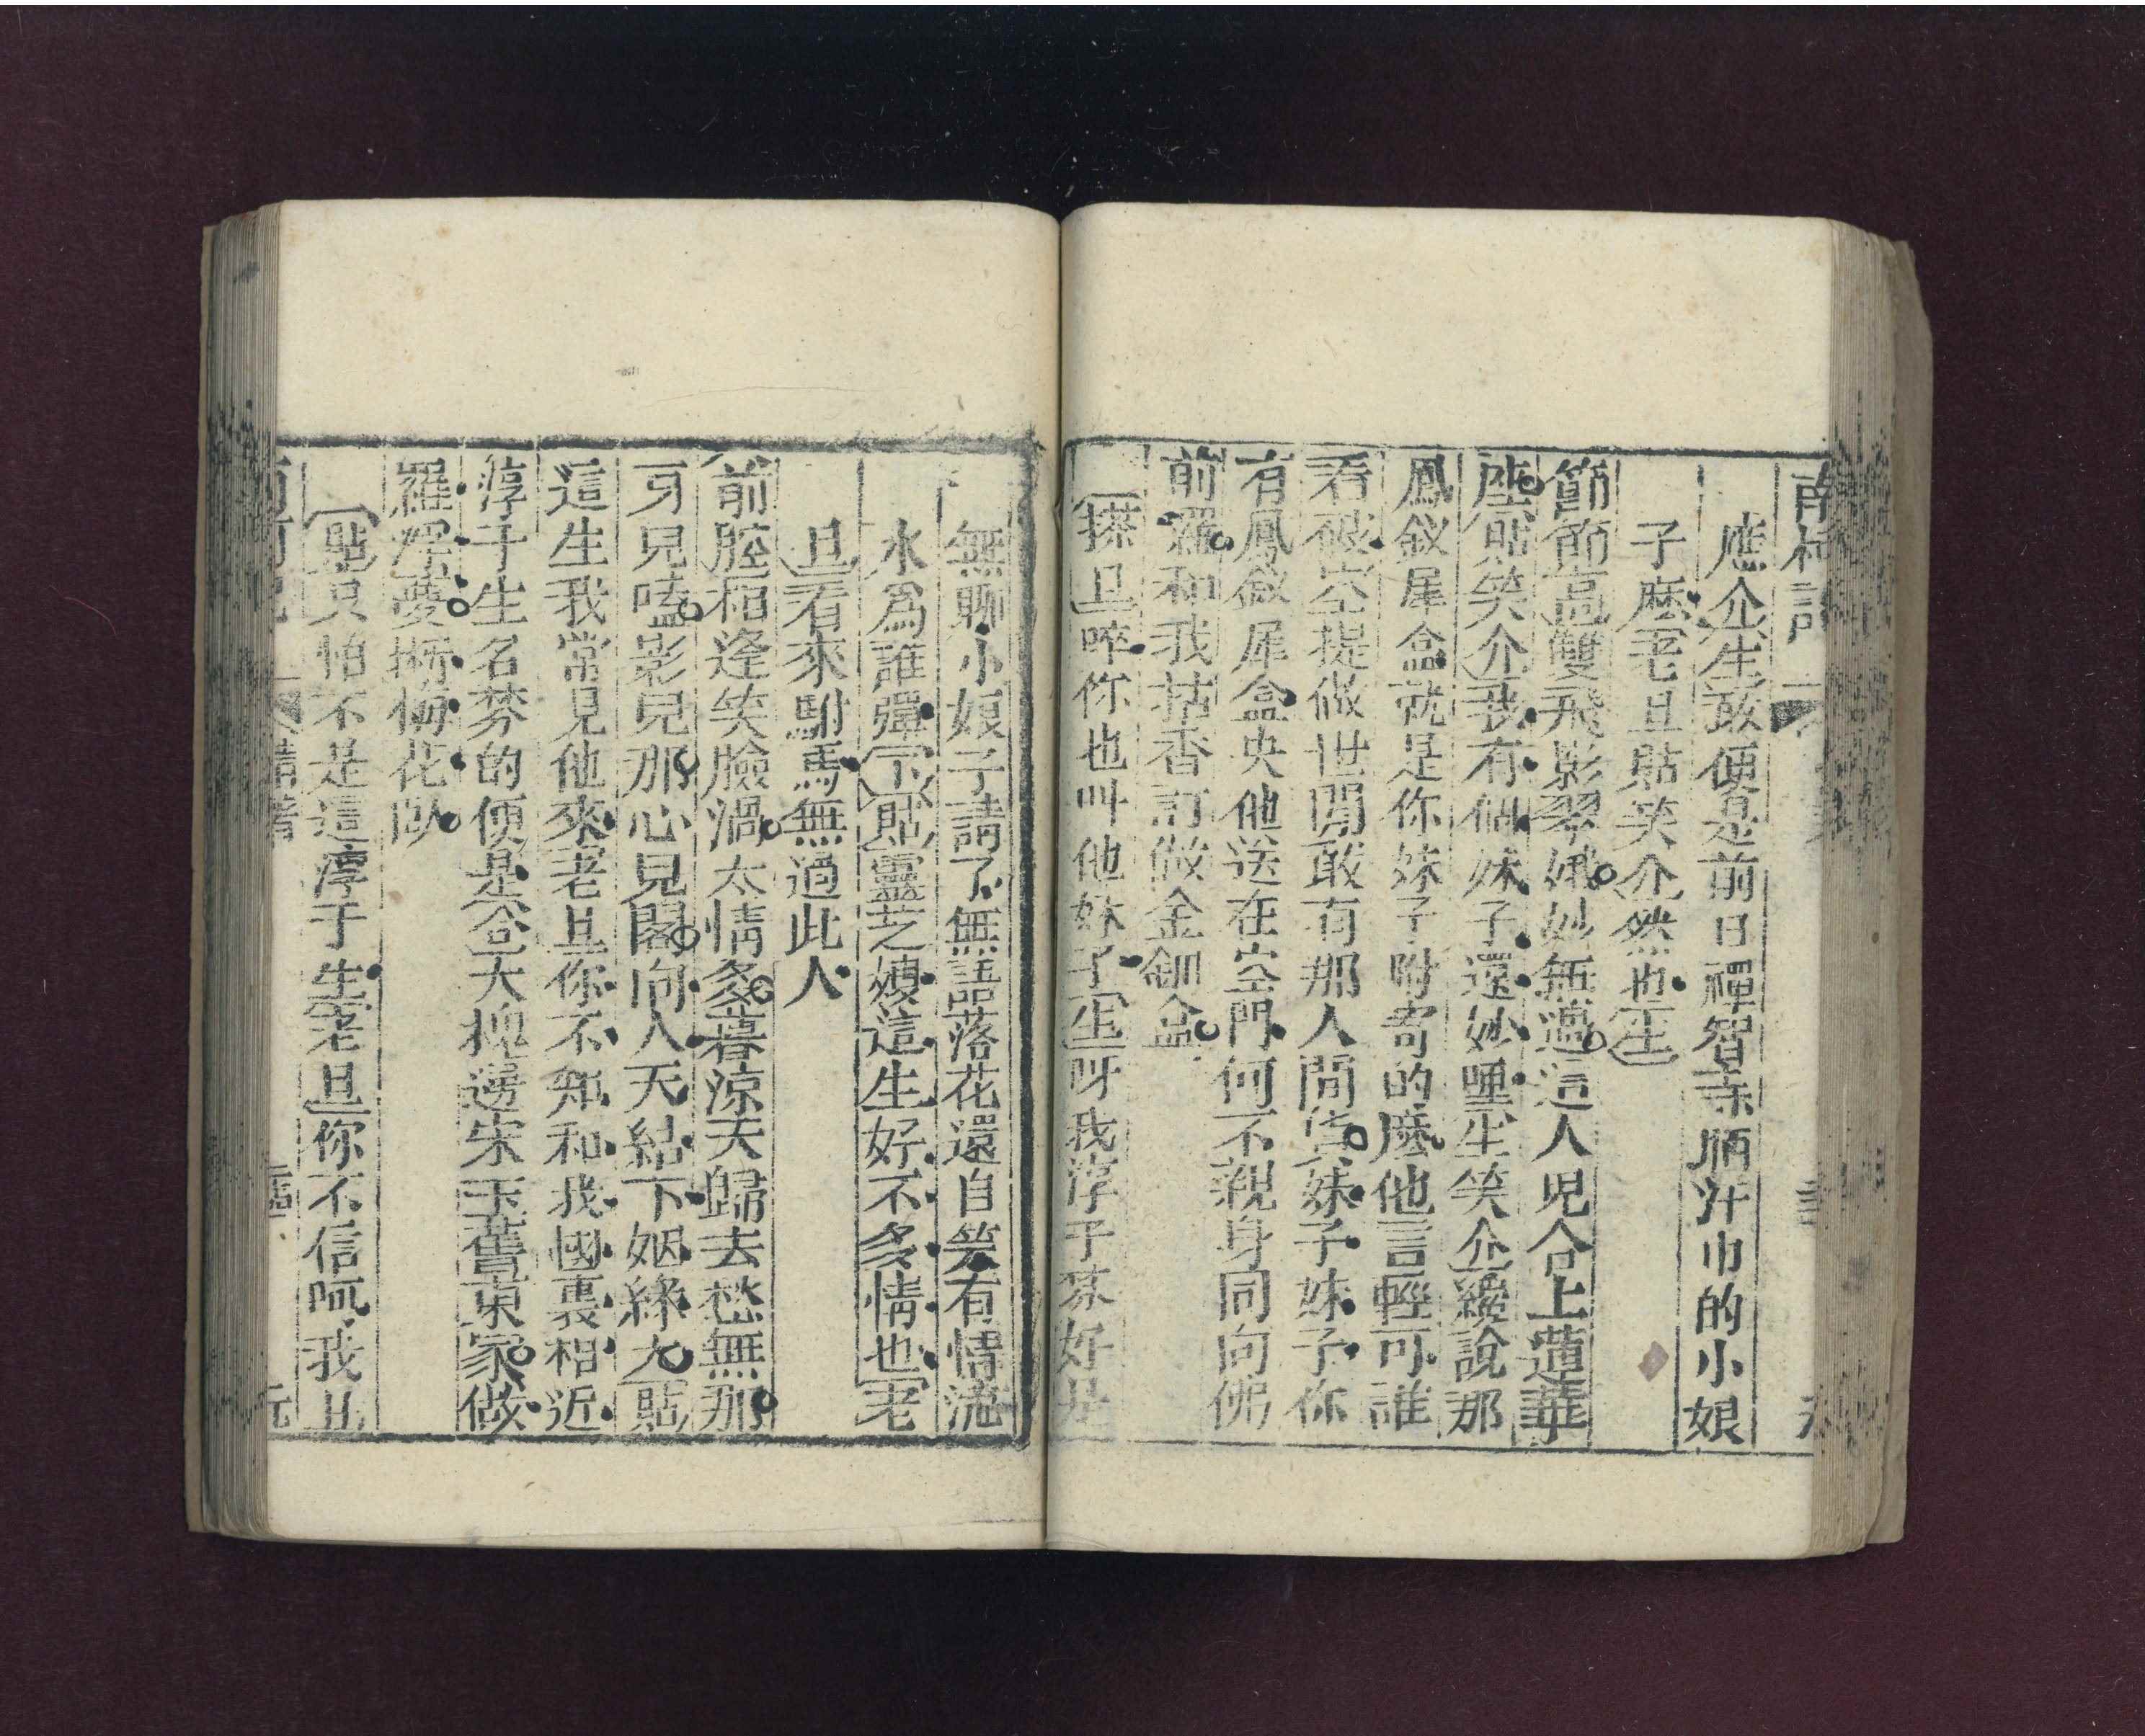 南柯記
應介生敢便是前日禪智寺順汗巾的小娘
子麽老旦貼笑介然也生
節節高雙飛影翠娥妙無過這人兒合上蓮華
座貼笑介我有個妹子還妙哩生笑介纔說那
鳳釵犀盒就是你妹子附寄的麽他言輕可誰
看破空提做世間敢有那人間貨妹子妹子你
有鳳釵犀盒央他送在空門何不親身同向佛
前羅和我拈香訂做金釧盒
搽旦啐你也叫他妹子生呀我淳于棼好是
無聊小娘子請了無語落花還自笑有情流
水爲誰彈下貼靈芝嫂這生好不多情也老
旦看來駙馬無過此人
前腔相逢笑臉渦太情多暮涼天歸去愁無那
牙兒嗑影兒那心見閣向人天結下姻緣大貼
這生我常見他來老旦你不知和我國裏相近
淳于生名棼的便是合大槐邊宋玉舊東家做
羅浮夢斷梅花臥
貼只怕不是這淳于生老旦你不信呵我且